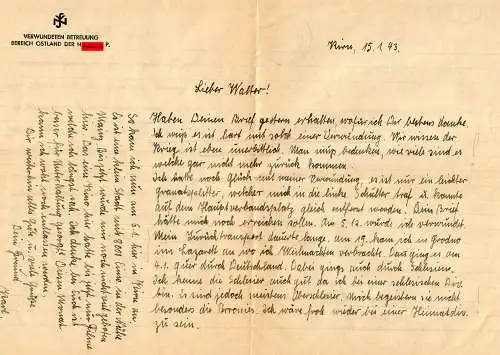 VERWUNDETEN BETREUUNG
BEREICH OSTLAND DER N P.
Kirn, 15.1.43.
Lieber Walter!
Haben Deinen Brief gestern erhalten, wofür ich Dir bestens danke.
Ich muß es ist hart mit solch einer Verwundung. Wir wissen der
Krieg ist eben unerbittlich. Man muß bedenken, wie viele sind es
welche gar nicht mehr zurück kommen.
Ich hatte noch Glück mit meiner Verwundung, es ist nur ein leichter
Granatsplitter, welcher mich in die linke Schulter traf u. konnte
auf dem Hauptverbandsplatz gleich entfernt werden. Dein Brief
hätte mich noch erreichen sollen. Den 5.12. wurde ich verwundet
Mein Zurücktransport dauerte lange. Am 19. kam ich in Grodno
im Lazarett an wo ich Weihnachten verbrachte. Dann ging es am
4.1. quer durch Deutschland. Dabei gings auch durch Schlesien.
Ich kenne die Schlesier auch gut da ich bei einer schlesischen Div.
bin. Es sind jedoch meistens Oberschlesier. Mich begeistern sie nicht
besonders die Brorries. Ich wäre froh wieder bei einer Heimatdiv.
zu sein.
So kam ich nun am 6.1. hier in Kirn an.
Es ist eine kleine Stadt mit 8000 Einw. in der Nähe
hier. Das eine Kino hier hatte bis jetzt nur Filme
welche ich längst sah. Ich denke bei Euch ist
besser für Unterhaltung gesorgt. Diesen Monat
kann ich wohl noch entlassen werden.
Dir weiterhin alles Gute u. viele Grüße
Dein Freund
Karl.